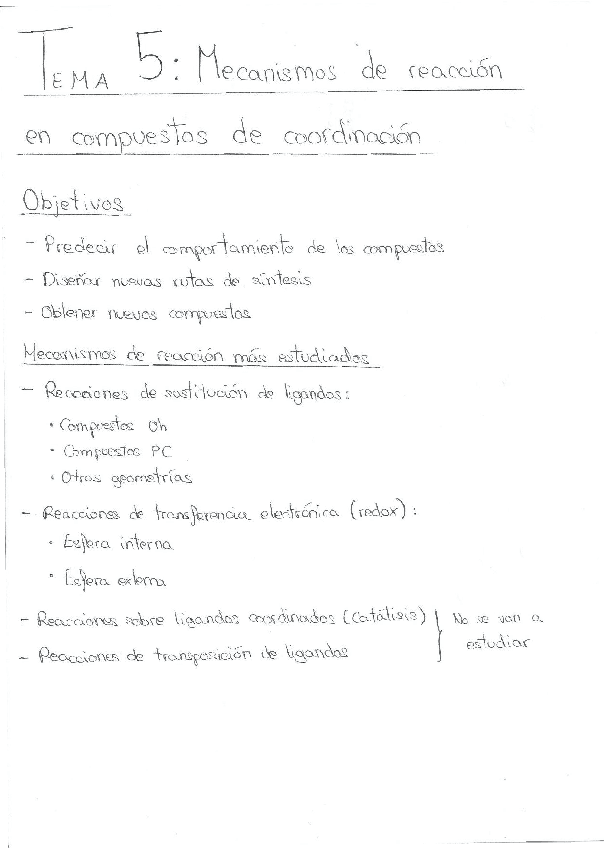 TEMA 5: Mecanismos de reacción
en compuestos de coordinación
Objetivos
- Predecir el comportamiento de los compuestos
- Diseñar nuevas rutas de síntesis
- Obtener nuevos compuestos
Mecanismos de reacción más estudiados
- Reacciones de sustitución de ligandos:
· Compuestos Oh
· Compuestos PC
· Otras geometrías
- Reacciones de transferencia electrónica (redox):
· Esfera interna
· Esfera externa
- Reacciones sobre ligandos coordinados (Catálisis) } No se van a
- Reacciones de transposición de ligandos estudiar